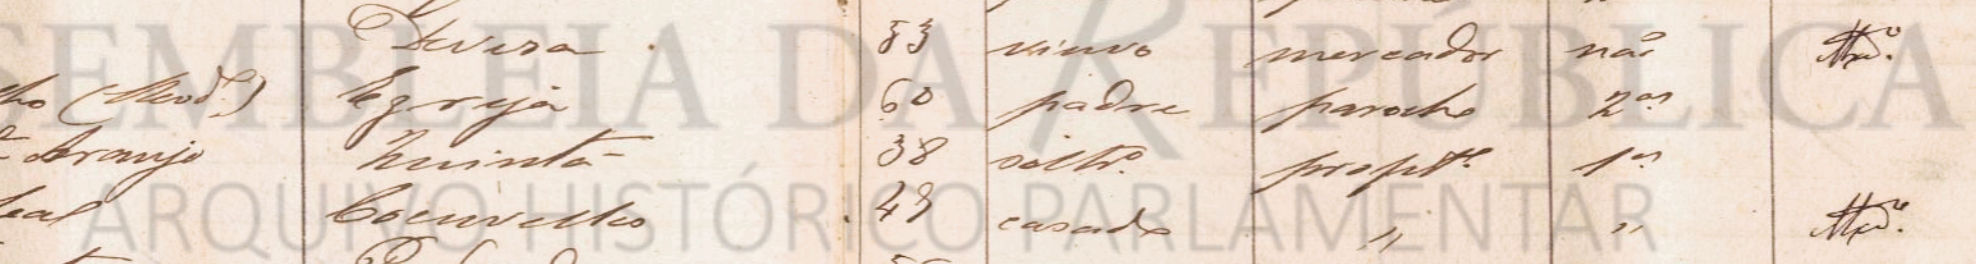 Deveza 53 viuvo mercador não
ho (Mend.º) Egreja 60 padre parocho 2.as
Araujo Quintã 38 soltr.º propt.º 1.as
eal Coenvelho 49 casado " "
ASSEMBLEIA DA REPÚBLICA
ARQUIVO HISTÓRICO PARLAMENTAR